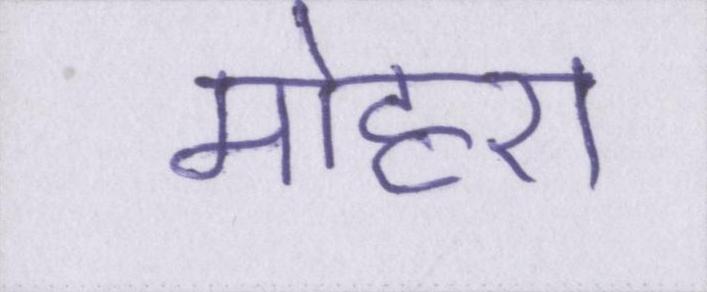 मोहरा